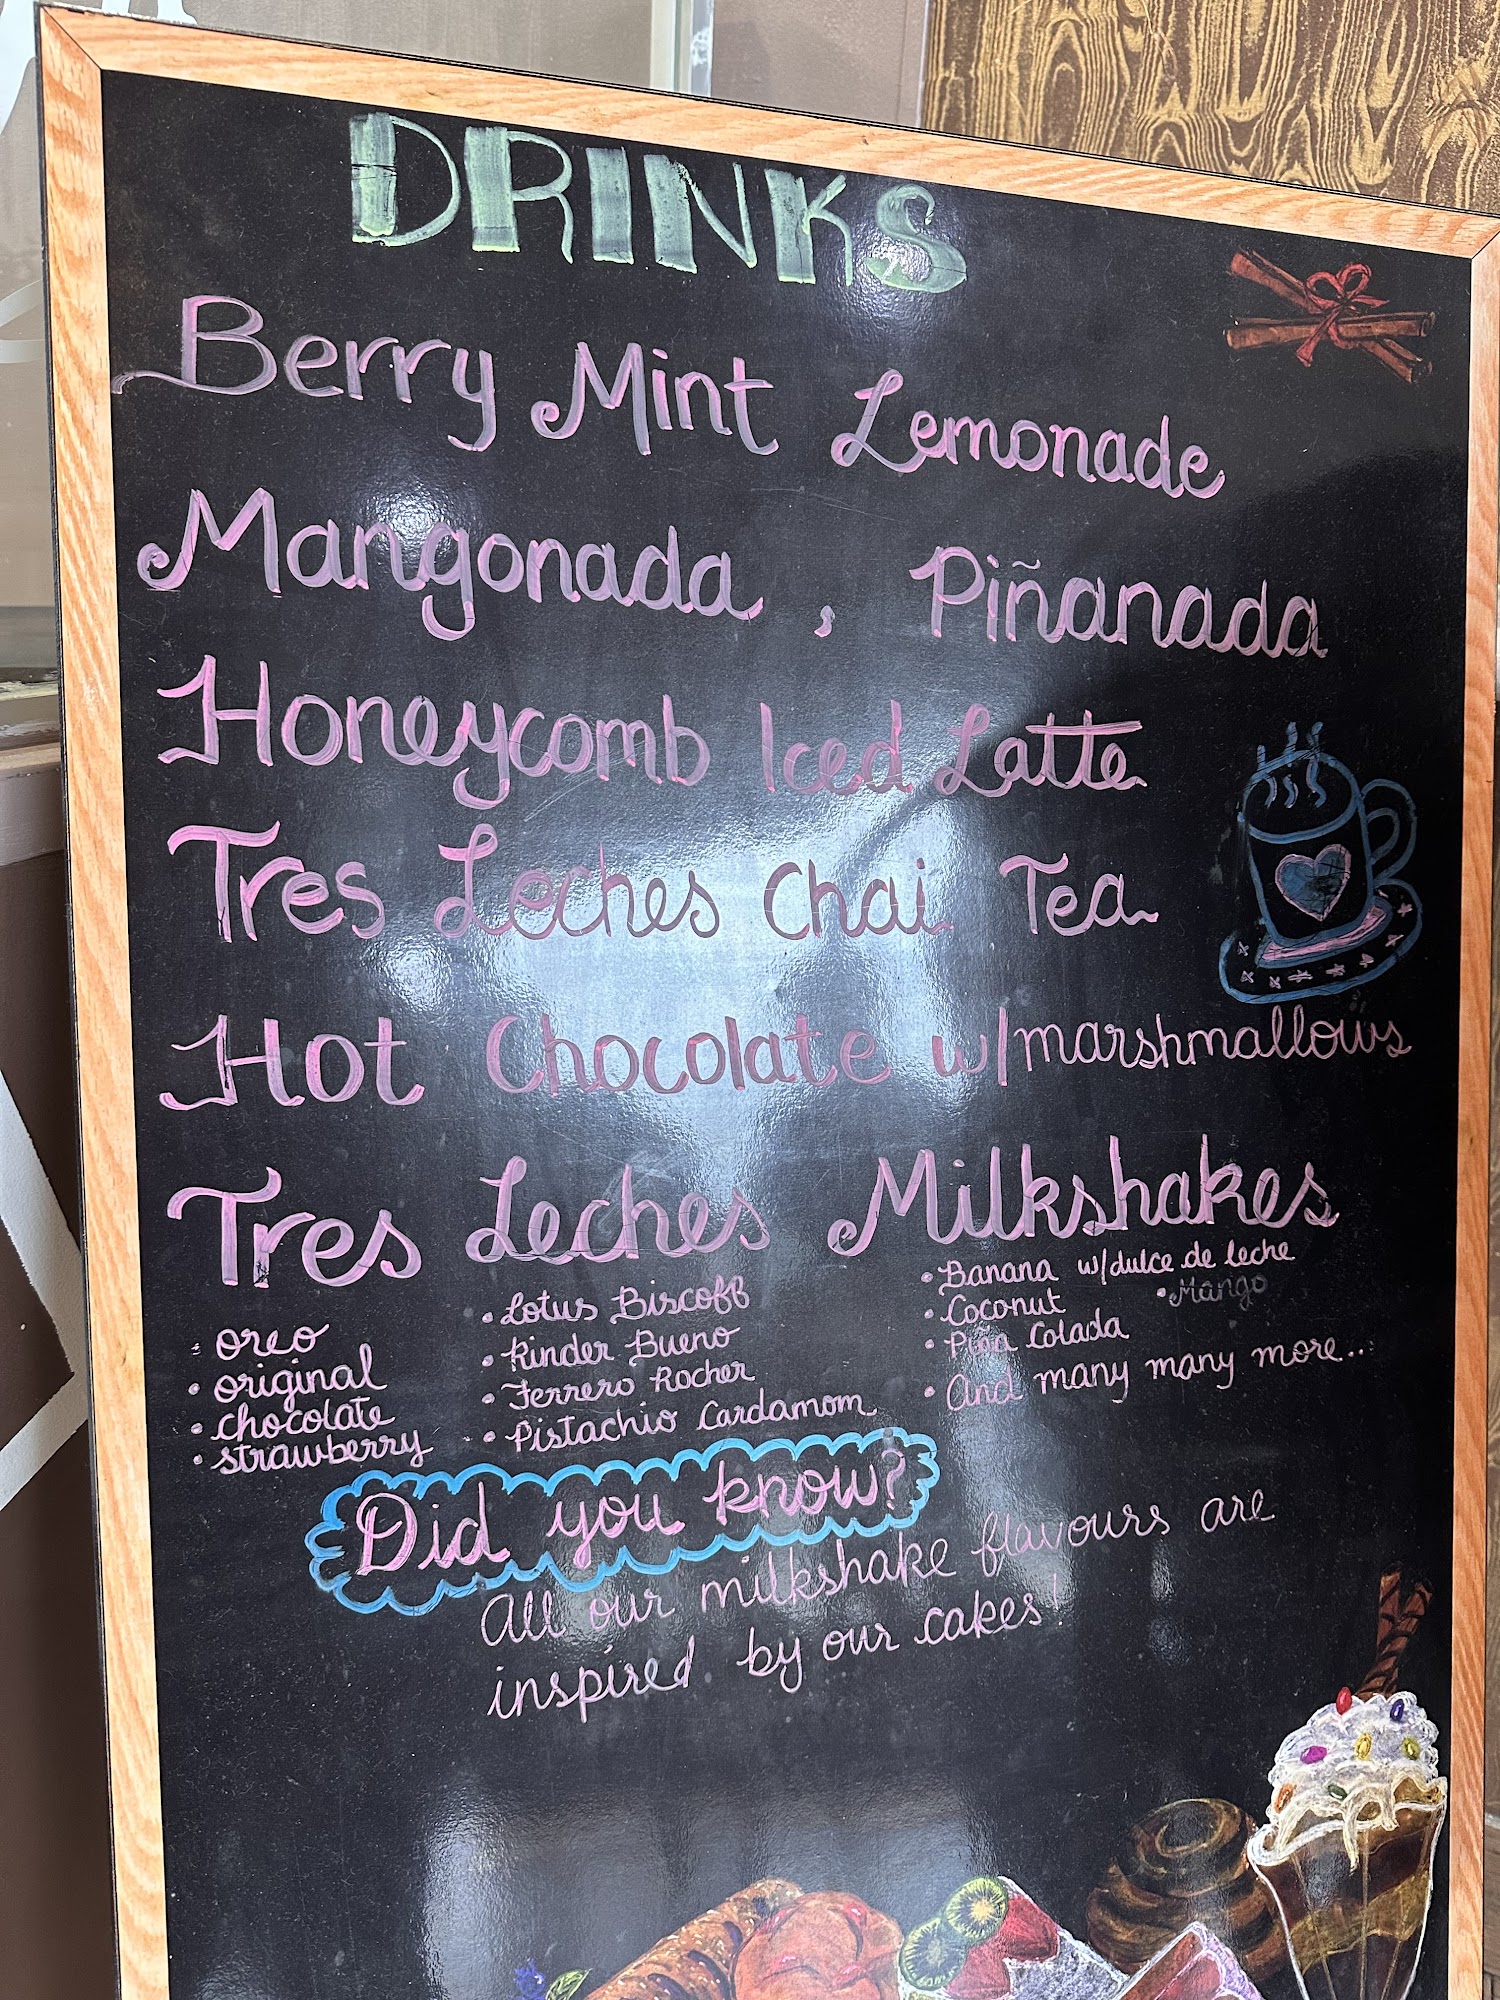 DRINKS
Berry Mint Lemonade
Mangonada, Piñanada
Honeycomb Iced Latte
Tres Leches Chai Tea
Hot Chocolate w/marshmallows
Tres Leches Milkshakes
• oreo
• original
• chocolate
• strawberry
• Lotus Biscoff
• Kinder Bueno
• Ferrero Rocher
• Pistachio Cardamom
• Banana w/dulce de leche
• Coconut • Mango
• Piña Colada
• And many many more...
Did you know?
All our milkshake flavours are
inspired by our cakes!